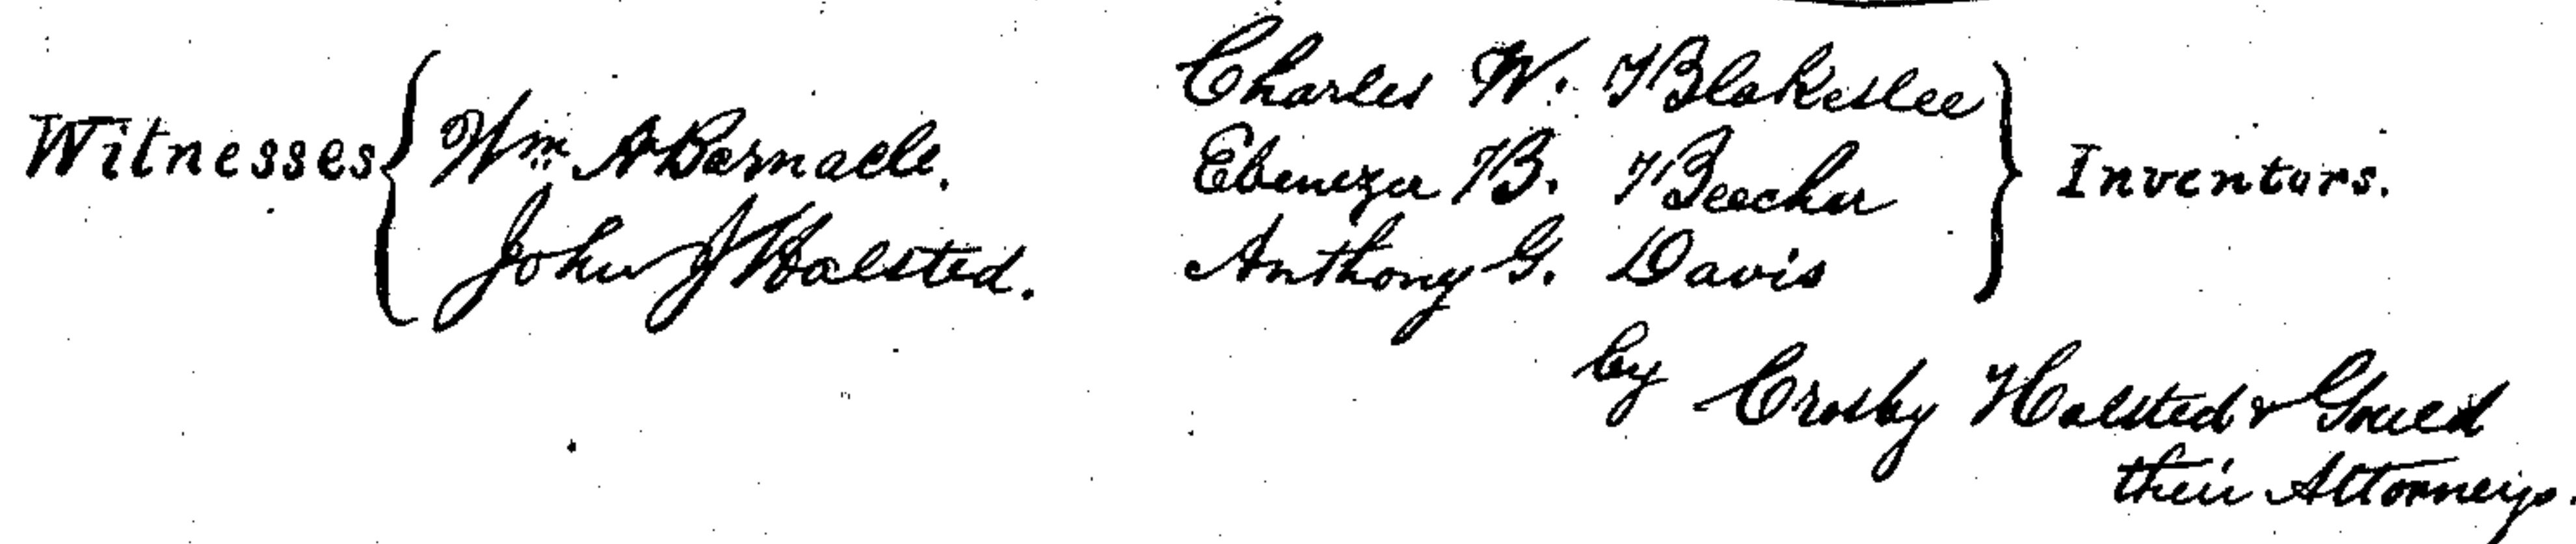 Witnesses
Wm A Barnacle.
John J Halsted.
Charles W. Blakeslee
Ebenezer B. Beecher
Anthony G. Davis
Inventors.
by Crosby Halsted & Gould
their Attorneys.